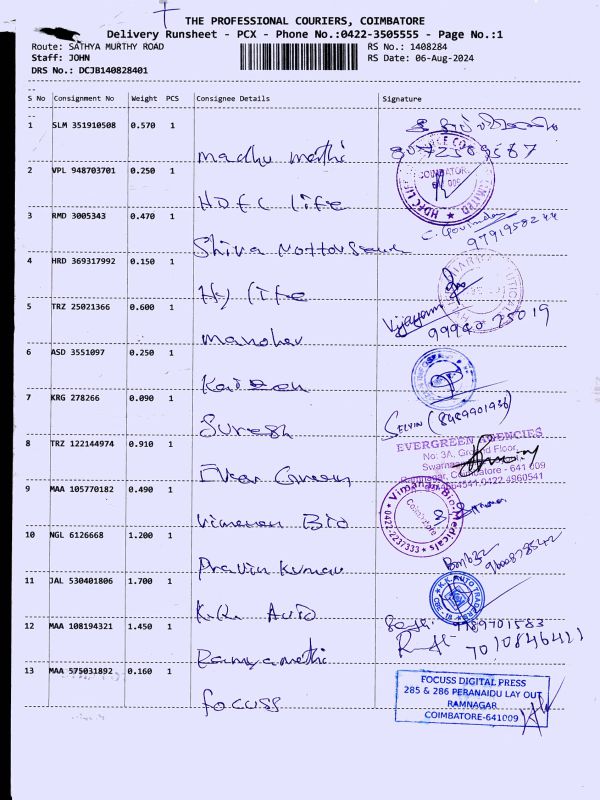 THE PROFESSIONAL COURIERS, COIMBATORE
Delivery Runsheet - PCX - Phone No.:0422-3505555 - Page No.:1
Route: SATHYA MURTHY ROAD
RS No.: 1408284
Staff: JOHN
RS Date: 06-Aug-2024
DRS No.: DCJB140828401
S No Consignment No Weight PCS Consignee Details Signature
1 SLM 351910508 0.570 1
8072569587
madhu mathi
2 VPL 948703701 0.250 1
COIMBATORE
HDFC LIFE
HDFC life
3 RMD 3005343 0.470 1
C. Govindan
9791958244
Shiva
4 HRD 369317992 0.150 1
Hy life
5 TRZ 25021366 0.600 1
Vijayan
99940 75019
manohar
6 ASD 3551097 0.250 1
7 KRG 278266 0.090 1
SELVIN (8489901936)
Suresh
8 TRZ 122144974 0.910 1
EVERGREEN AGENCIES
No: 3A, Ground Floor,
Ramnagar, Coimbatore - 641 009
0422-4960541
Ever Green
9 MAA 105770182 0.490 1
Vimanan Bio Medicals
Coimbatore
0422-2237333
Vimanan Bio
10 NGL 6126668 1.200 1
9600878542
Pravin Kumar
11 JAL 530401806 1.700 1
K.K. AUTO TRADERS
K.K. Auto
12 MAA 108194321 1.450 1
9789701583
7010846421
Ramyamathi
13 MAA 575031892 0.160 1
FOCUSS DIGITAL PRESS
285 & 286 PERANAIDU LAY OUT
RAMNAGAR
COIMBATORE-641009
focuss